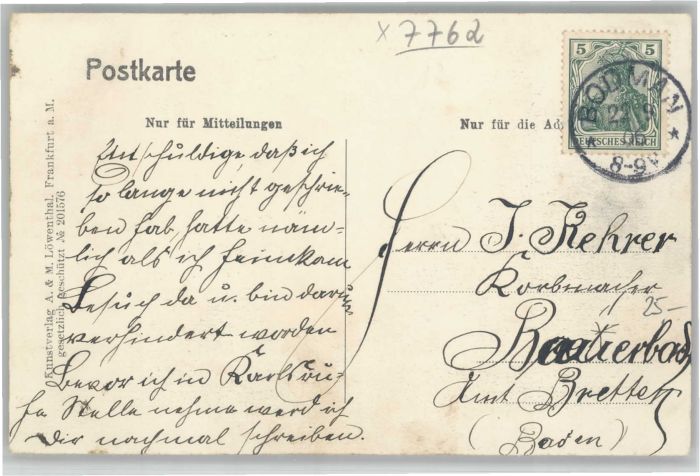 x 7762
Postkarte
Nur für Mitteilungen
Nur für die Ad
5 5
DEUTSCHES REICH
BODMAN
06
8-9V
Kunstverlag A. & M. Löwenthal, Frankfurt a. M.
gesetzlich geschützt № 201576
Entschuldige, daß ich
so lange nicht geschrie-
ben hab, hatte näm-
lich als ich heimkam
Besuch da u. bin darum
verhindert worden
Bevor ich in Karlsru-
he Stelle nehme werd ich
dir nochmal schreiben.
Herrn J. Kehrer
Korbmacher
25-
Amt Bretten
(Baden)